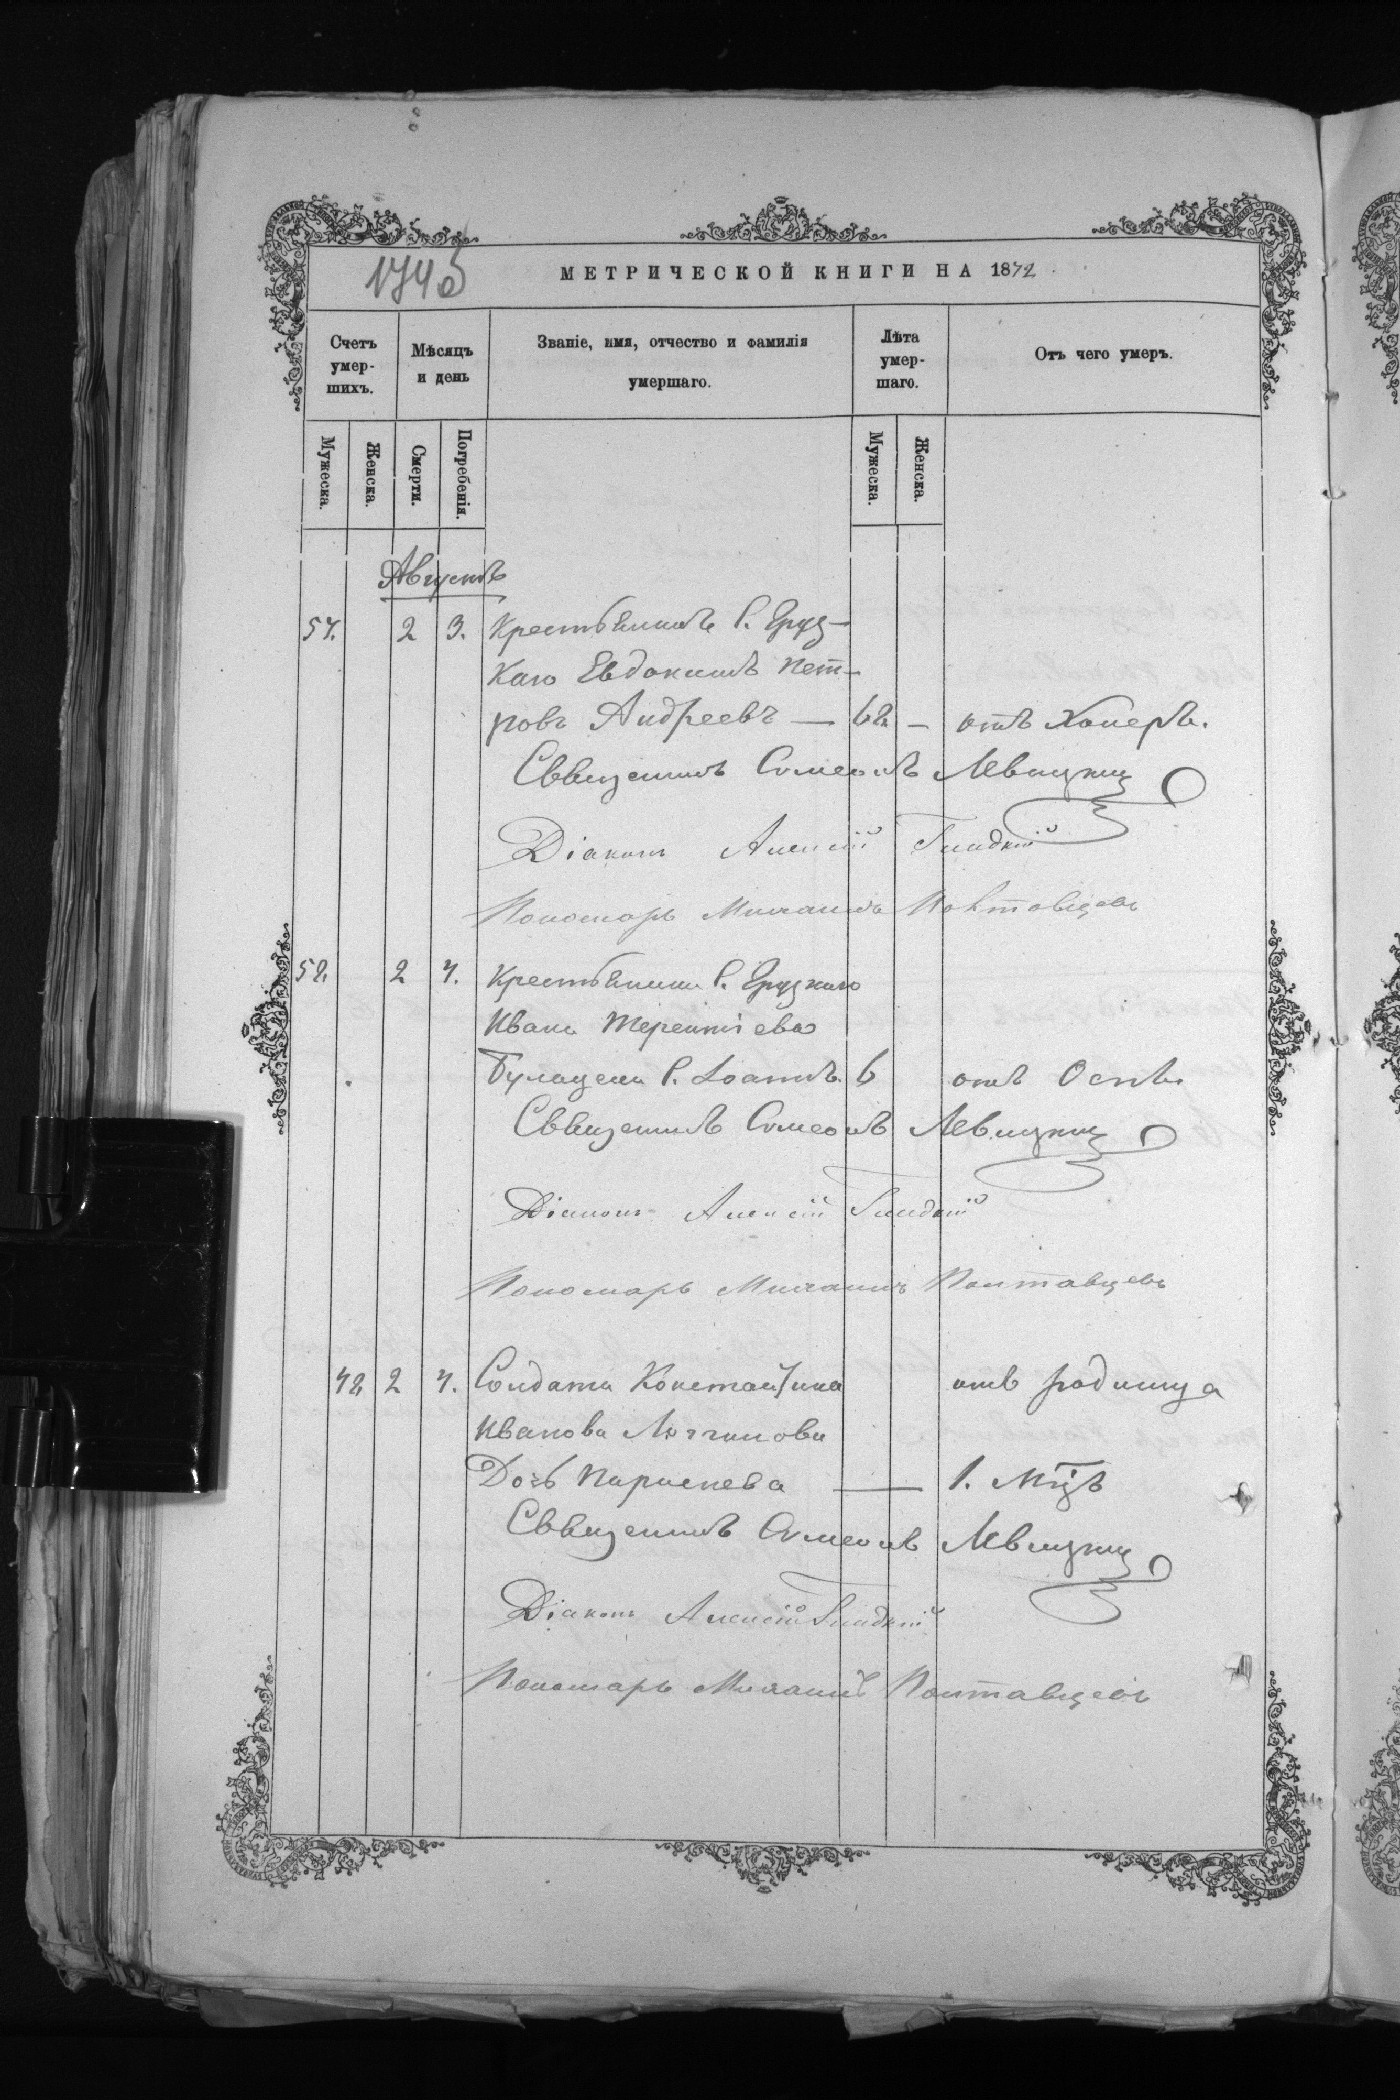 174об
МЕТРИЧЕСКОЙ КНИГИ НА 1872
Счетъ умер-шихъ.
Мѣсяцъ и день
Званіе, имя, отчество и фамилія умершаго.
Лѣта умер-шаго.
Отъ чего умеръ.
Мужеска.
Женска.
Смерти.
Погребенія.
Мужеска.
Женска.
Августъ
57. 2 3. Крестьянинъ С. Груз-
каго Евдокимъ Пет-
ровъ Андреевъ — 62 — отъ Холеры.
Священникъ Симеонъ Левицкій
Діаконъ Алексій Гладкій
Пономарь Михаилъ Полтавцевъ
58. 2 4. Крестьянина С. Грузкаго
Ивана Терентіева
С. Іоаннъ. 6 отъ Оспы.
Священникъ Симеонъ Левицкій
Діаконъ Алексій Гладкій
Пономарь Михаилъ Полтавцевъ
42 2 4. Солдата Константина отъ родимца
Иванова
Дочь Параскева — 1. Мцъ
Священникъ Симеонъ Левицкій
Діаконъ Алексій Гладкій
Пономарь Михаилъ Полтавцевъ